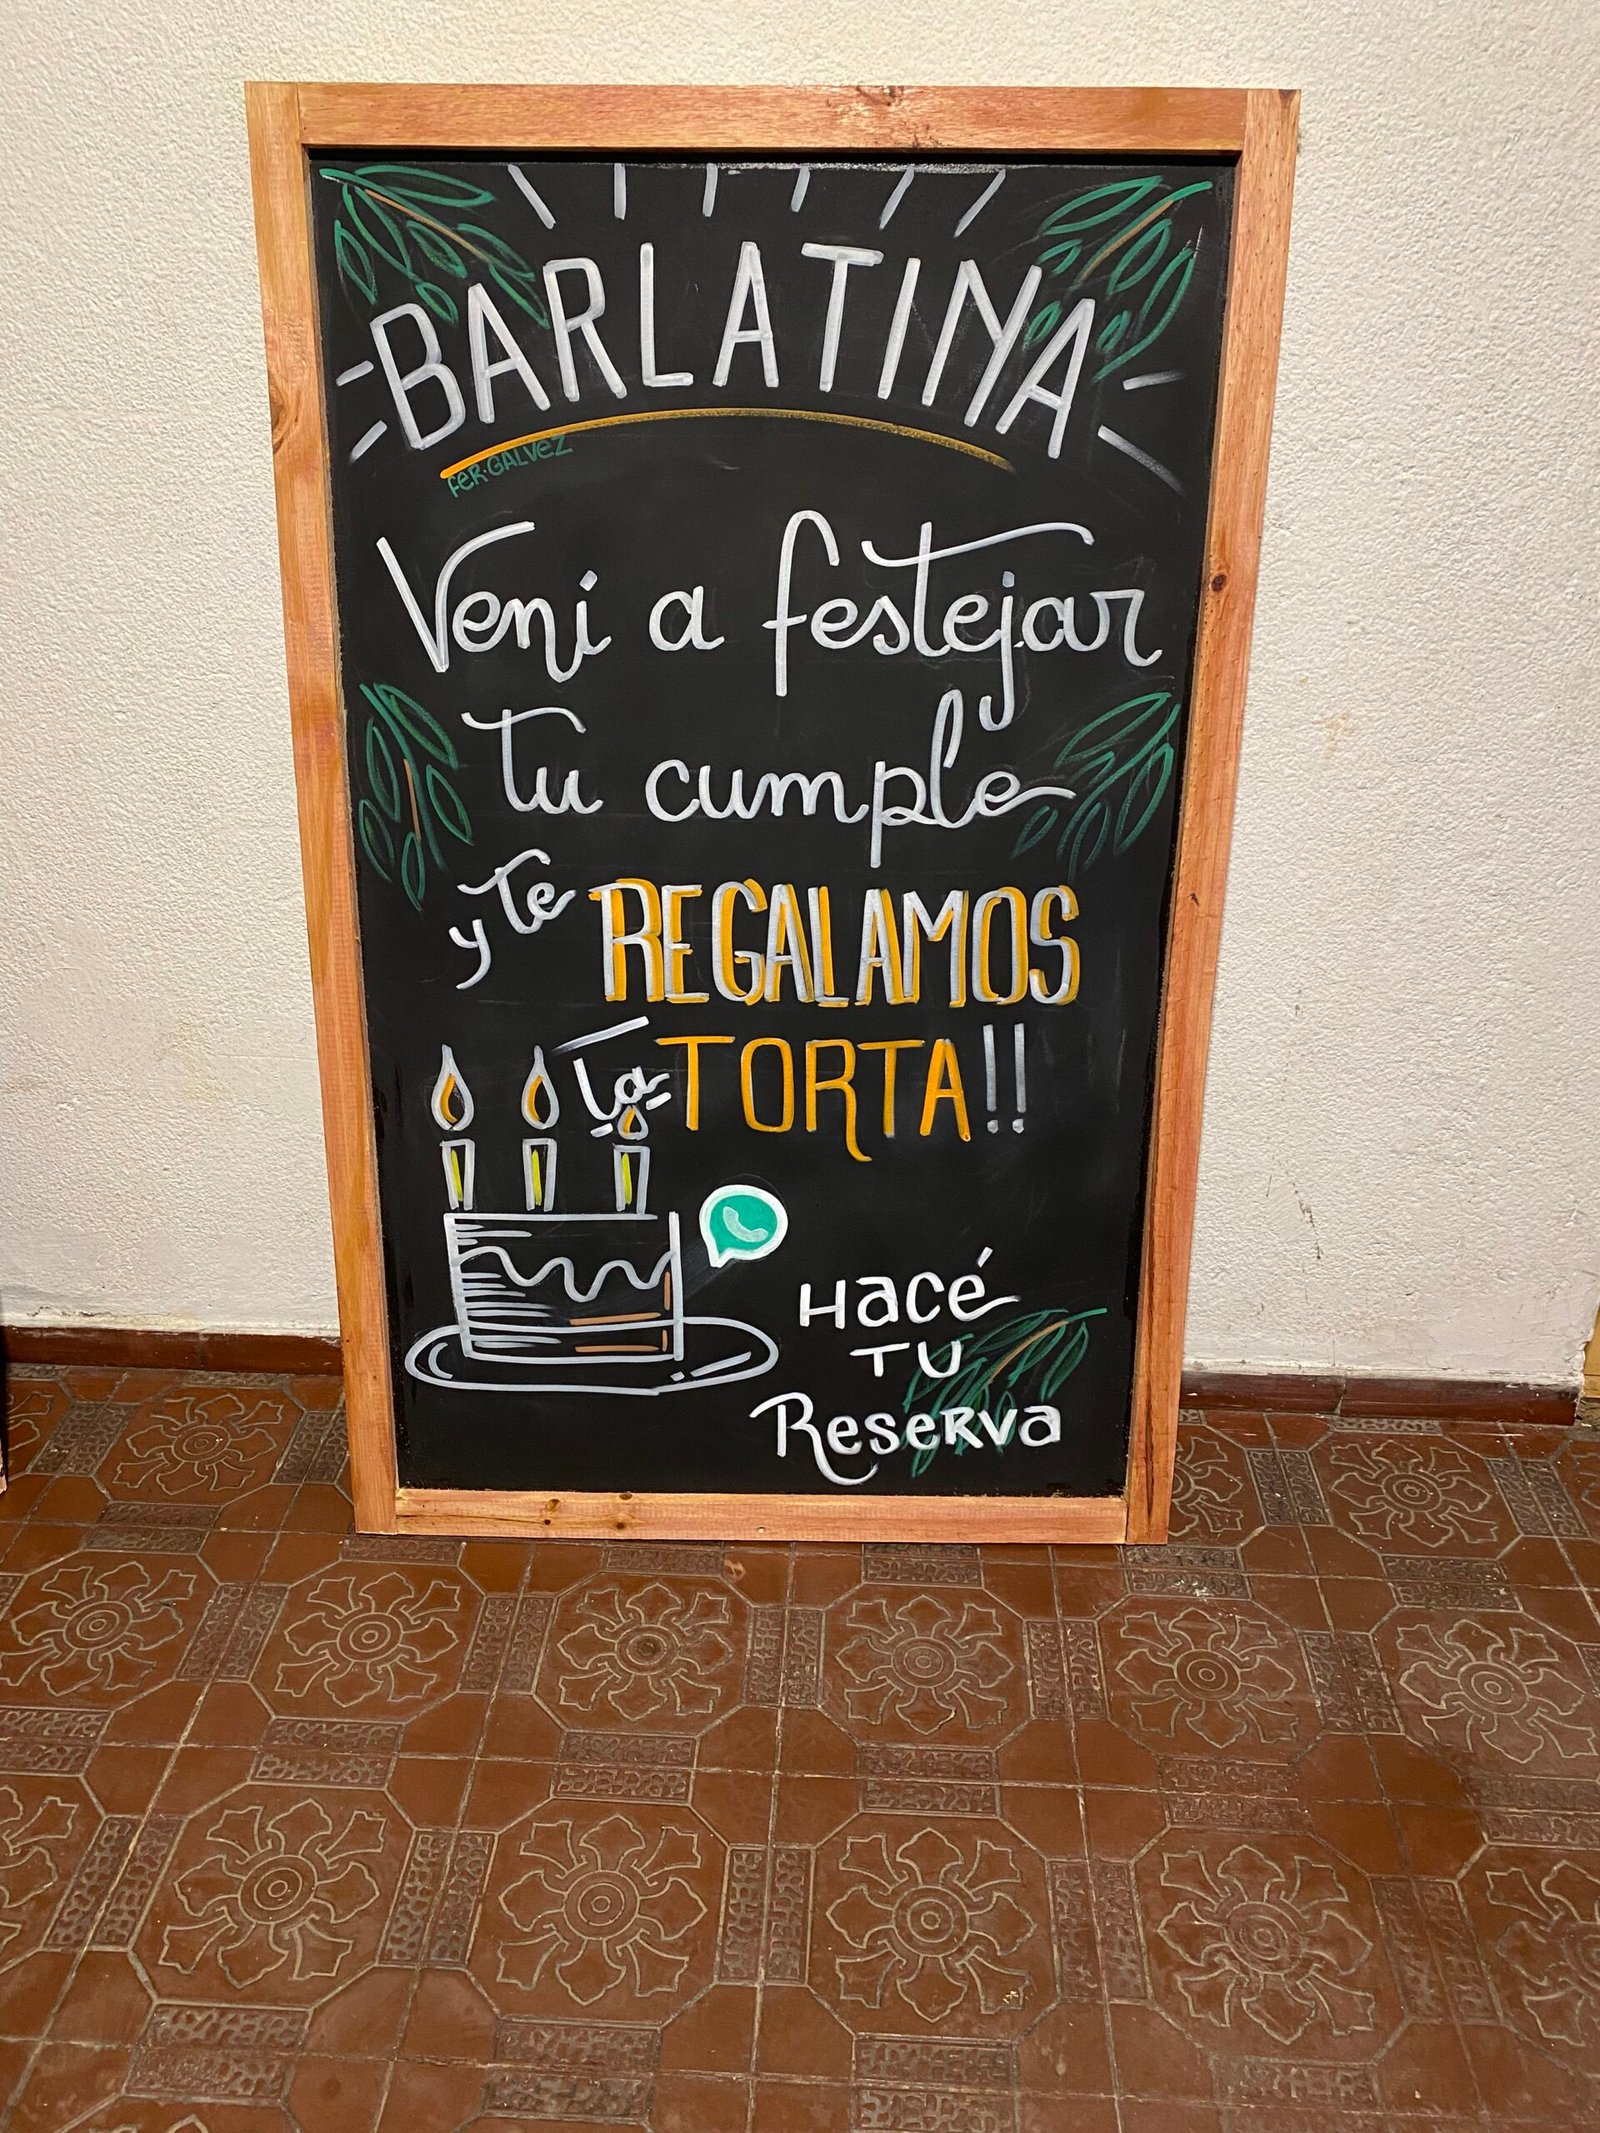 BARLATINA
FER·GALVEZ
Vení a festejar
Tu cumple
y Te REGALAMOS
La TORTA!!
HACÉ
TU
RESERVA